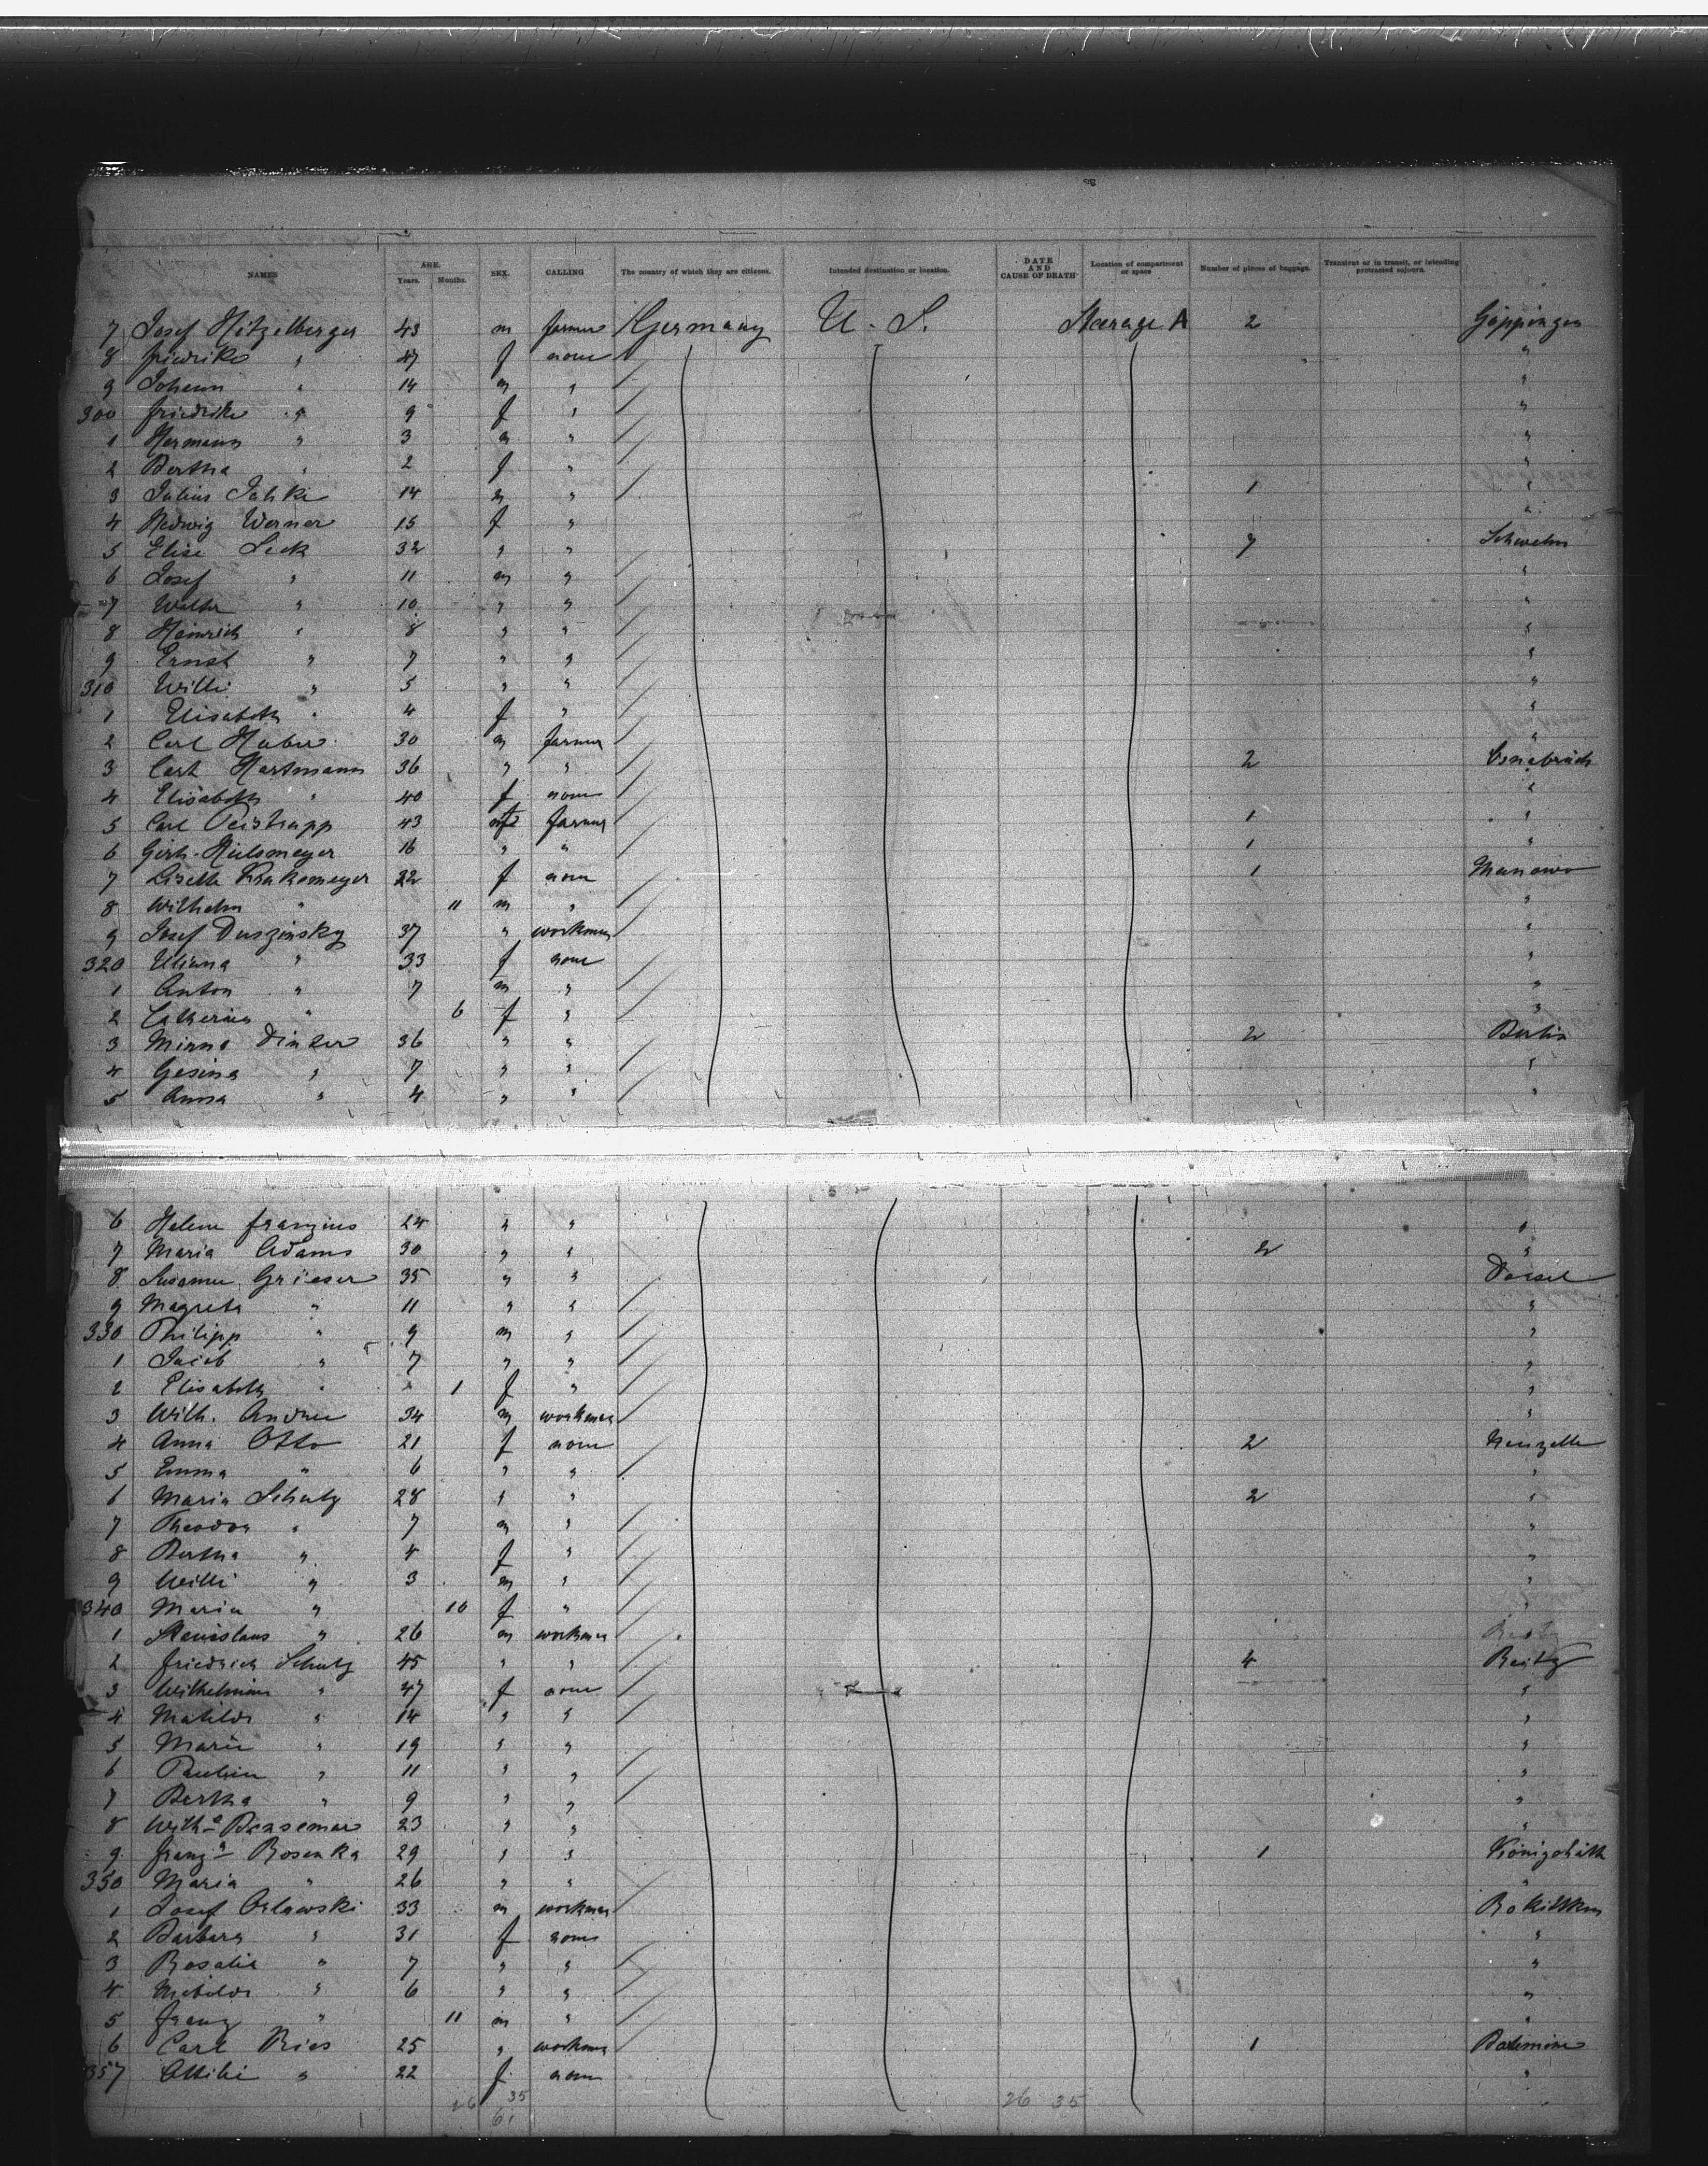 NAMES AGE. Years. Months. SEX. CALLING The country of which they are citizens. Intended destination or location. DATE AND CAUSE OF DEATH Location of compartment or space Number of pieces of baggage. Transient or in transit, or intending protracted sojourn.
7 Josef Hitzelberger 43 m farmer Germany U. S. Steerage A 2 Göppingen
8 Friedrike " 47 f none "
9 Johann " 14 m " "
300 Friedrike " 9 f " "
1 Hermann " 3 m " "
2 Bertha " 2 f " "
3 Julius Jahke 14 m " 1 "
4 Hedwig Werner 15 f " "
5 Elise Sick 32 " " 7 Schwelm
6 Josef " 11 m " "
7 Walther " 10 " " "
8 Heinrich " 8 " " "
9 Ernst " 7 " " "
310 Willi " 5 " " "
1 Elisabeth " 4 f " "
2 Carl Huber 30 m farmer "
3 Carl Hartmann 36 " " 2 Osnabrück
4 Elisabeth " 40 f none "
5 Carl 43 m farmer 1 "
6 Gerh. Hülsmeyer 16 " " 1 "
7 Lisette Krakemeyer 22 f none 1 Manowo
8 Wilhelm " 11 m " "
9 Josef Duszinsky 37 " workman "
320 " 33 f none "
1 Anton " 7 m " "
2 Catherina " 6 f " "
3 Minna Dinker 36 " " 2 Berlin
4 Gesina " 7 " " "
5 Anna " 4 " " "
6 Helene Franzius 24 " " "
7 Maria Adams 30 " " 2 "
8 Susanne Grieser 35 " "
9 Magreta " 11 " " "
330 Philipp " 9 m " "
1 Jacob " 7 " " "
2 Elisabeth " 1 f " "
3 Wilh. Andree 34 m workman "
4 Anna Otto 21 f none 2 Neuzelle
5 Emma " 6 " " "
6 Maria Schulz 28 " " 2 "
7 Theodor " 7 m " "
8 Bertha " 4 f " "
9 Willi " 3 m " "
340 Maria " 10 f " "
1 Stanislaus " 26 m workman
2 Friedrich Schulz 45 " " 4 Beitz
3 Wilhelmine " 47 f none "
4 Matilde " 14 " " "
5 Marie " 19 " " "
6 Pauline " 11 " " "
7 Bertha " 9 " " "
8 Wilh.e 23 " " "
9 Franz.a Rosenka 29 " " 1 Königshütte
350 Maria " 26 " " "
1 Josef Orlowski 33 m workman
2 Barbara " 31 f none "
3 Rosalie " 7 " " "
4 Matilde " 6 " " "
5 Franz " 11 m " "
6 Carl Ries 25 " workman 1
357 Ottilie " 22 f none "
26 35 26 35
61